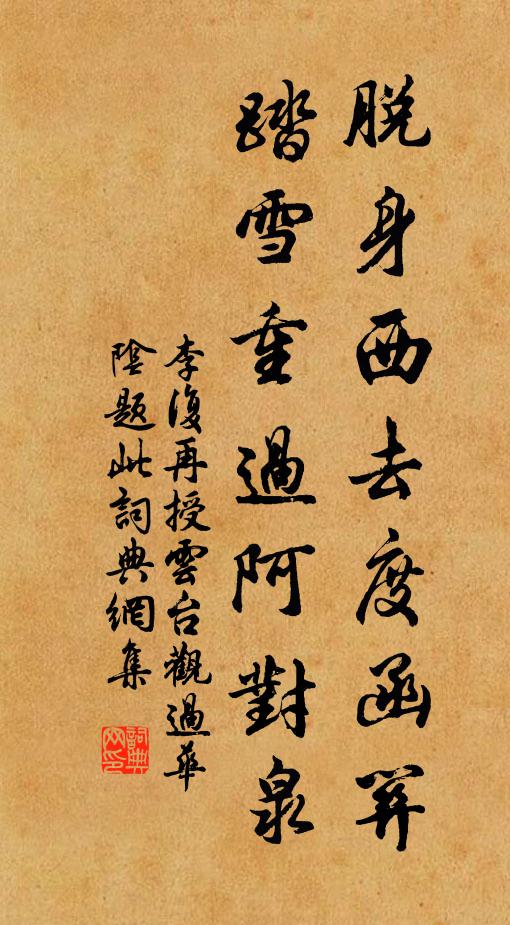 脱身西去度函关
踏雪重過阿對泉
李復再授雲台觀過華
陰題此詞典網集
詞典
网印